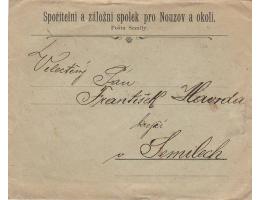 Spořitelní a záložní spolek pro Nouzov a okolí.
Pošta Semily.
Velectěný Pán
František
v Semilech